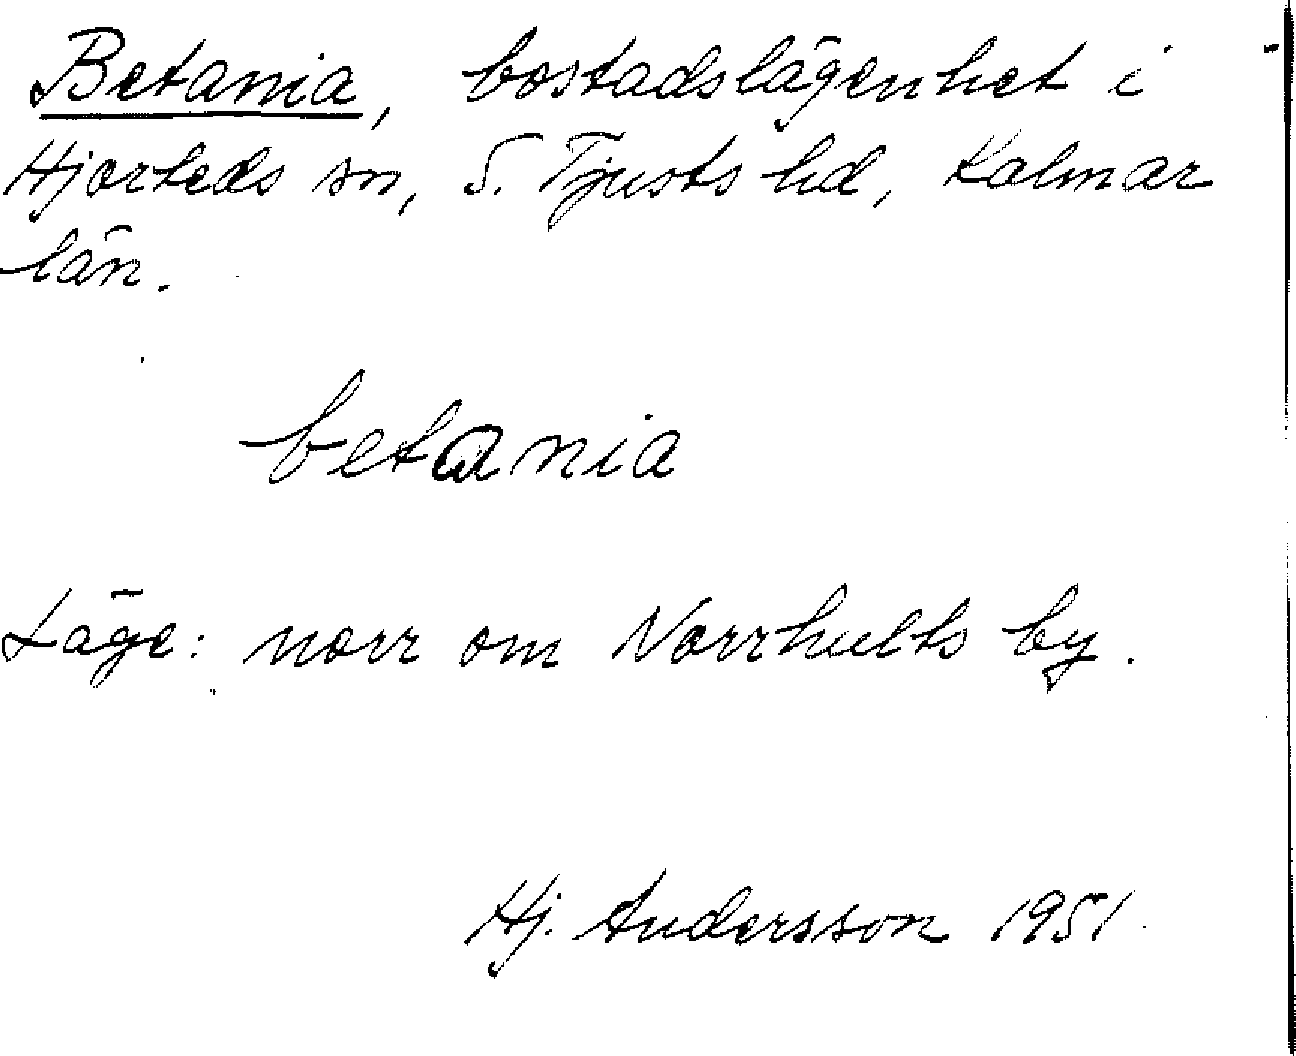 Betania, bostadslägenhet i
Hjorteds sn, S. Tjusts hd, Kalmar
län.
betania
Läge: norr om Norrhults by.
Hj. Andersson 1951